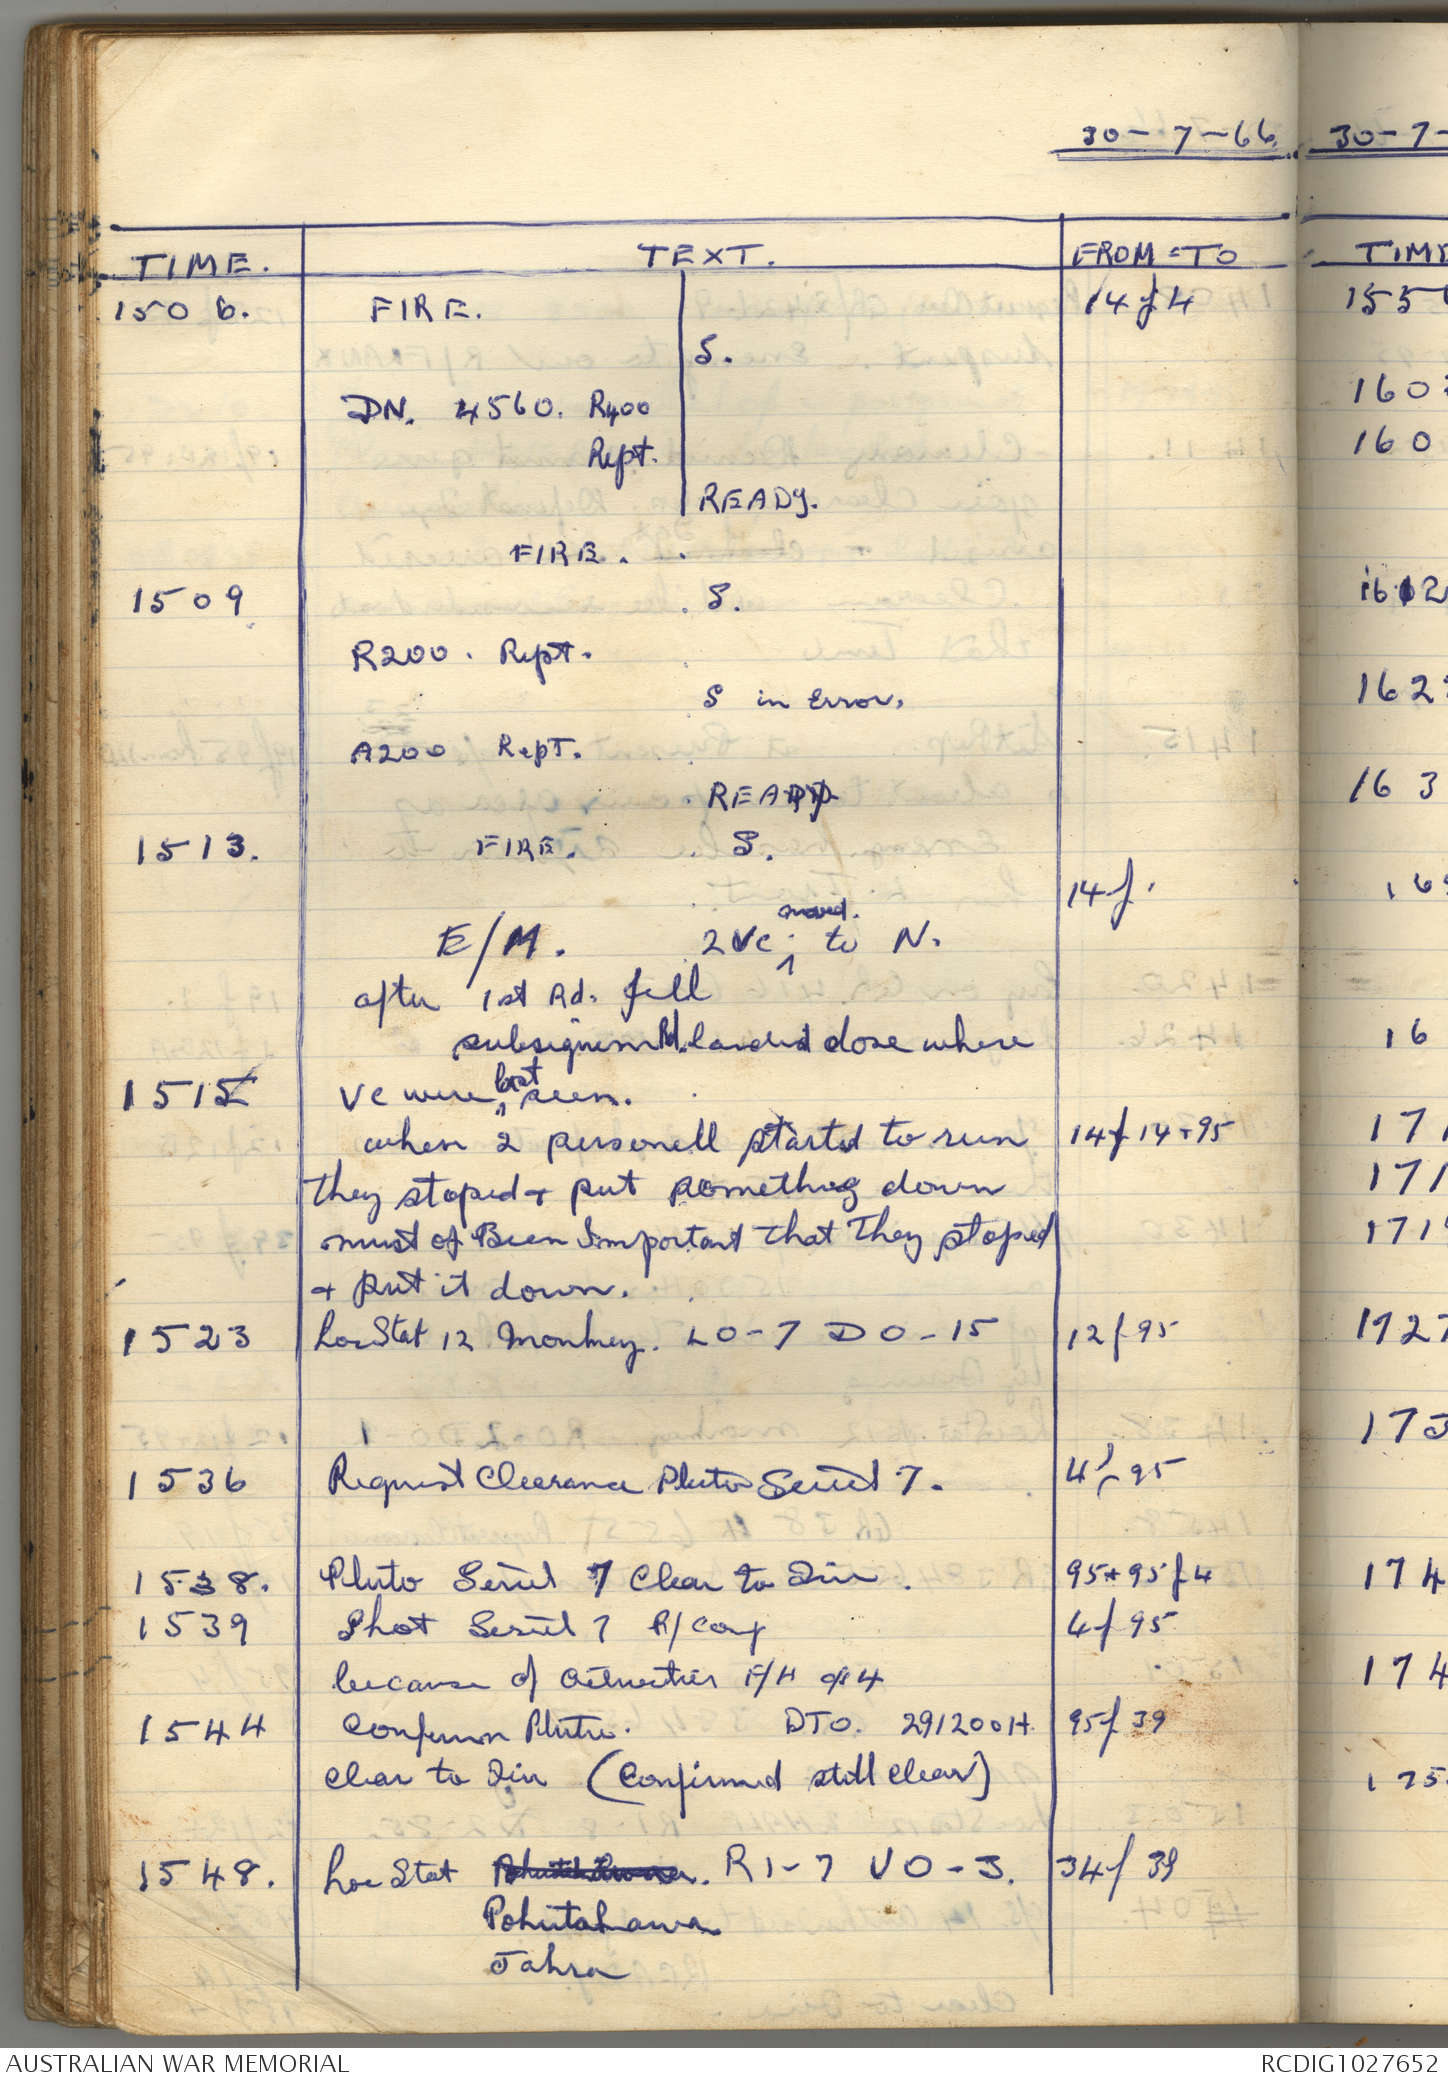 30-7-66.
TIME. TEXT. FROM = TO
1506. FIRE. 14 f 4
S.
DN. 4560. R400
Rept.
READY.
FIRE.
1509 S.
R200. Rept.
S in Error.
A200 Rept.
READY
1513. FIRE. S.
14 f.
E/M. 2 VC moved. to N.
after 1st Rd. fell
Rd. landed close where
1515 VC were last seen.
when 2 personell started to run 14 f 14 + 95
they stoped + put something down
must of Been Important that They stoped
+ put it down.
1523 Loc Stat 12 Monkey. LO-7 DO-15 12 f 95
1536 Request Clearance Pluto Serial 7. 4 f 95
1538. Pluto Serial 7 Clear to Fire. 95 + 95 f 4
1539 Shot Serial 7 4 f 95
because of F/H 4
1544 Confirm Pluto. DTO. 291200H. 95 f 39
Clear to Fire (Confirmed still clear)
1548. Loc Stat R1-7 VO-3. 34 f 39
Pohutakawa
Tahra
30-7-
TIME
155
160
160
1612
162
163
16
16
17
171
171
1727
173
174
174
175
AUSTRALIAN WAR MEMORIAL RCDIG1027652